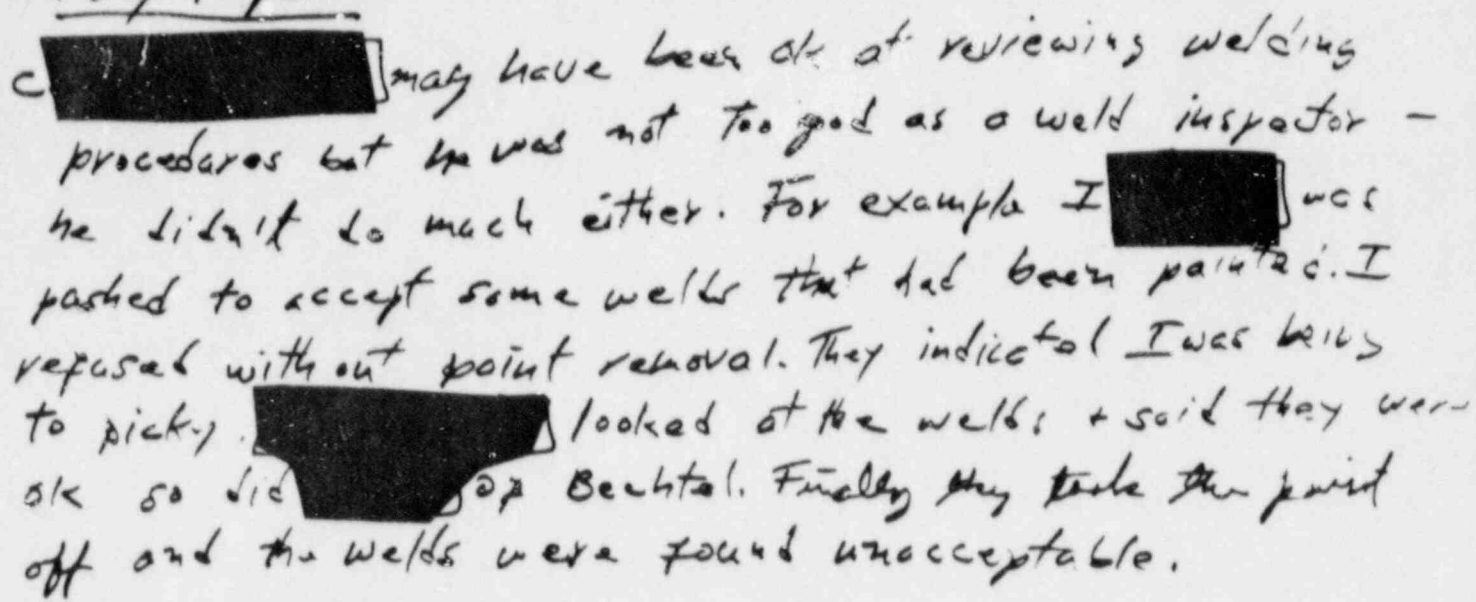 may have been ok at reviewing welding
procedures but he was not too good as a weld inspector -
he didn't do much either. For example I was
pushed to accept some welds that had been painted. I
refused without paint removal. They indicated I was being
to picky. looked at the welds + said they were
ok so did of Bechtel. Finally they took the paint
off and the welds were found unacceptable.